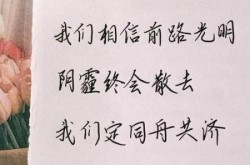 我们相信前路光明
阴霾终会散去
我们定同舟共济